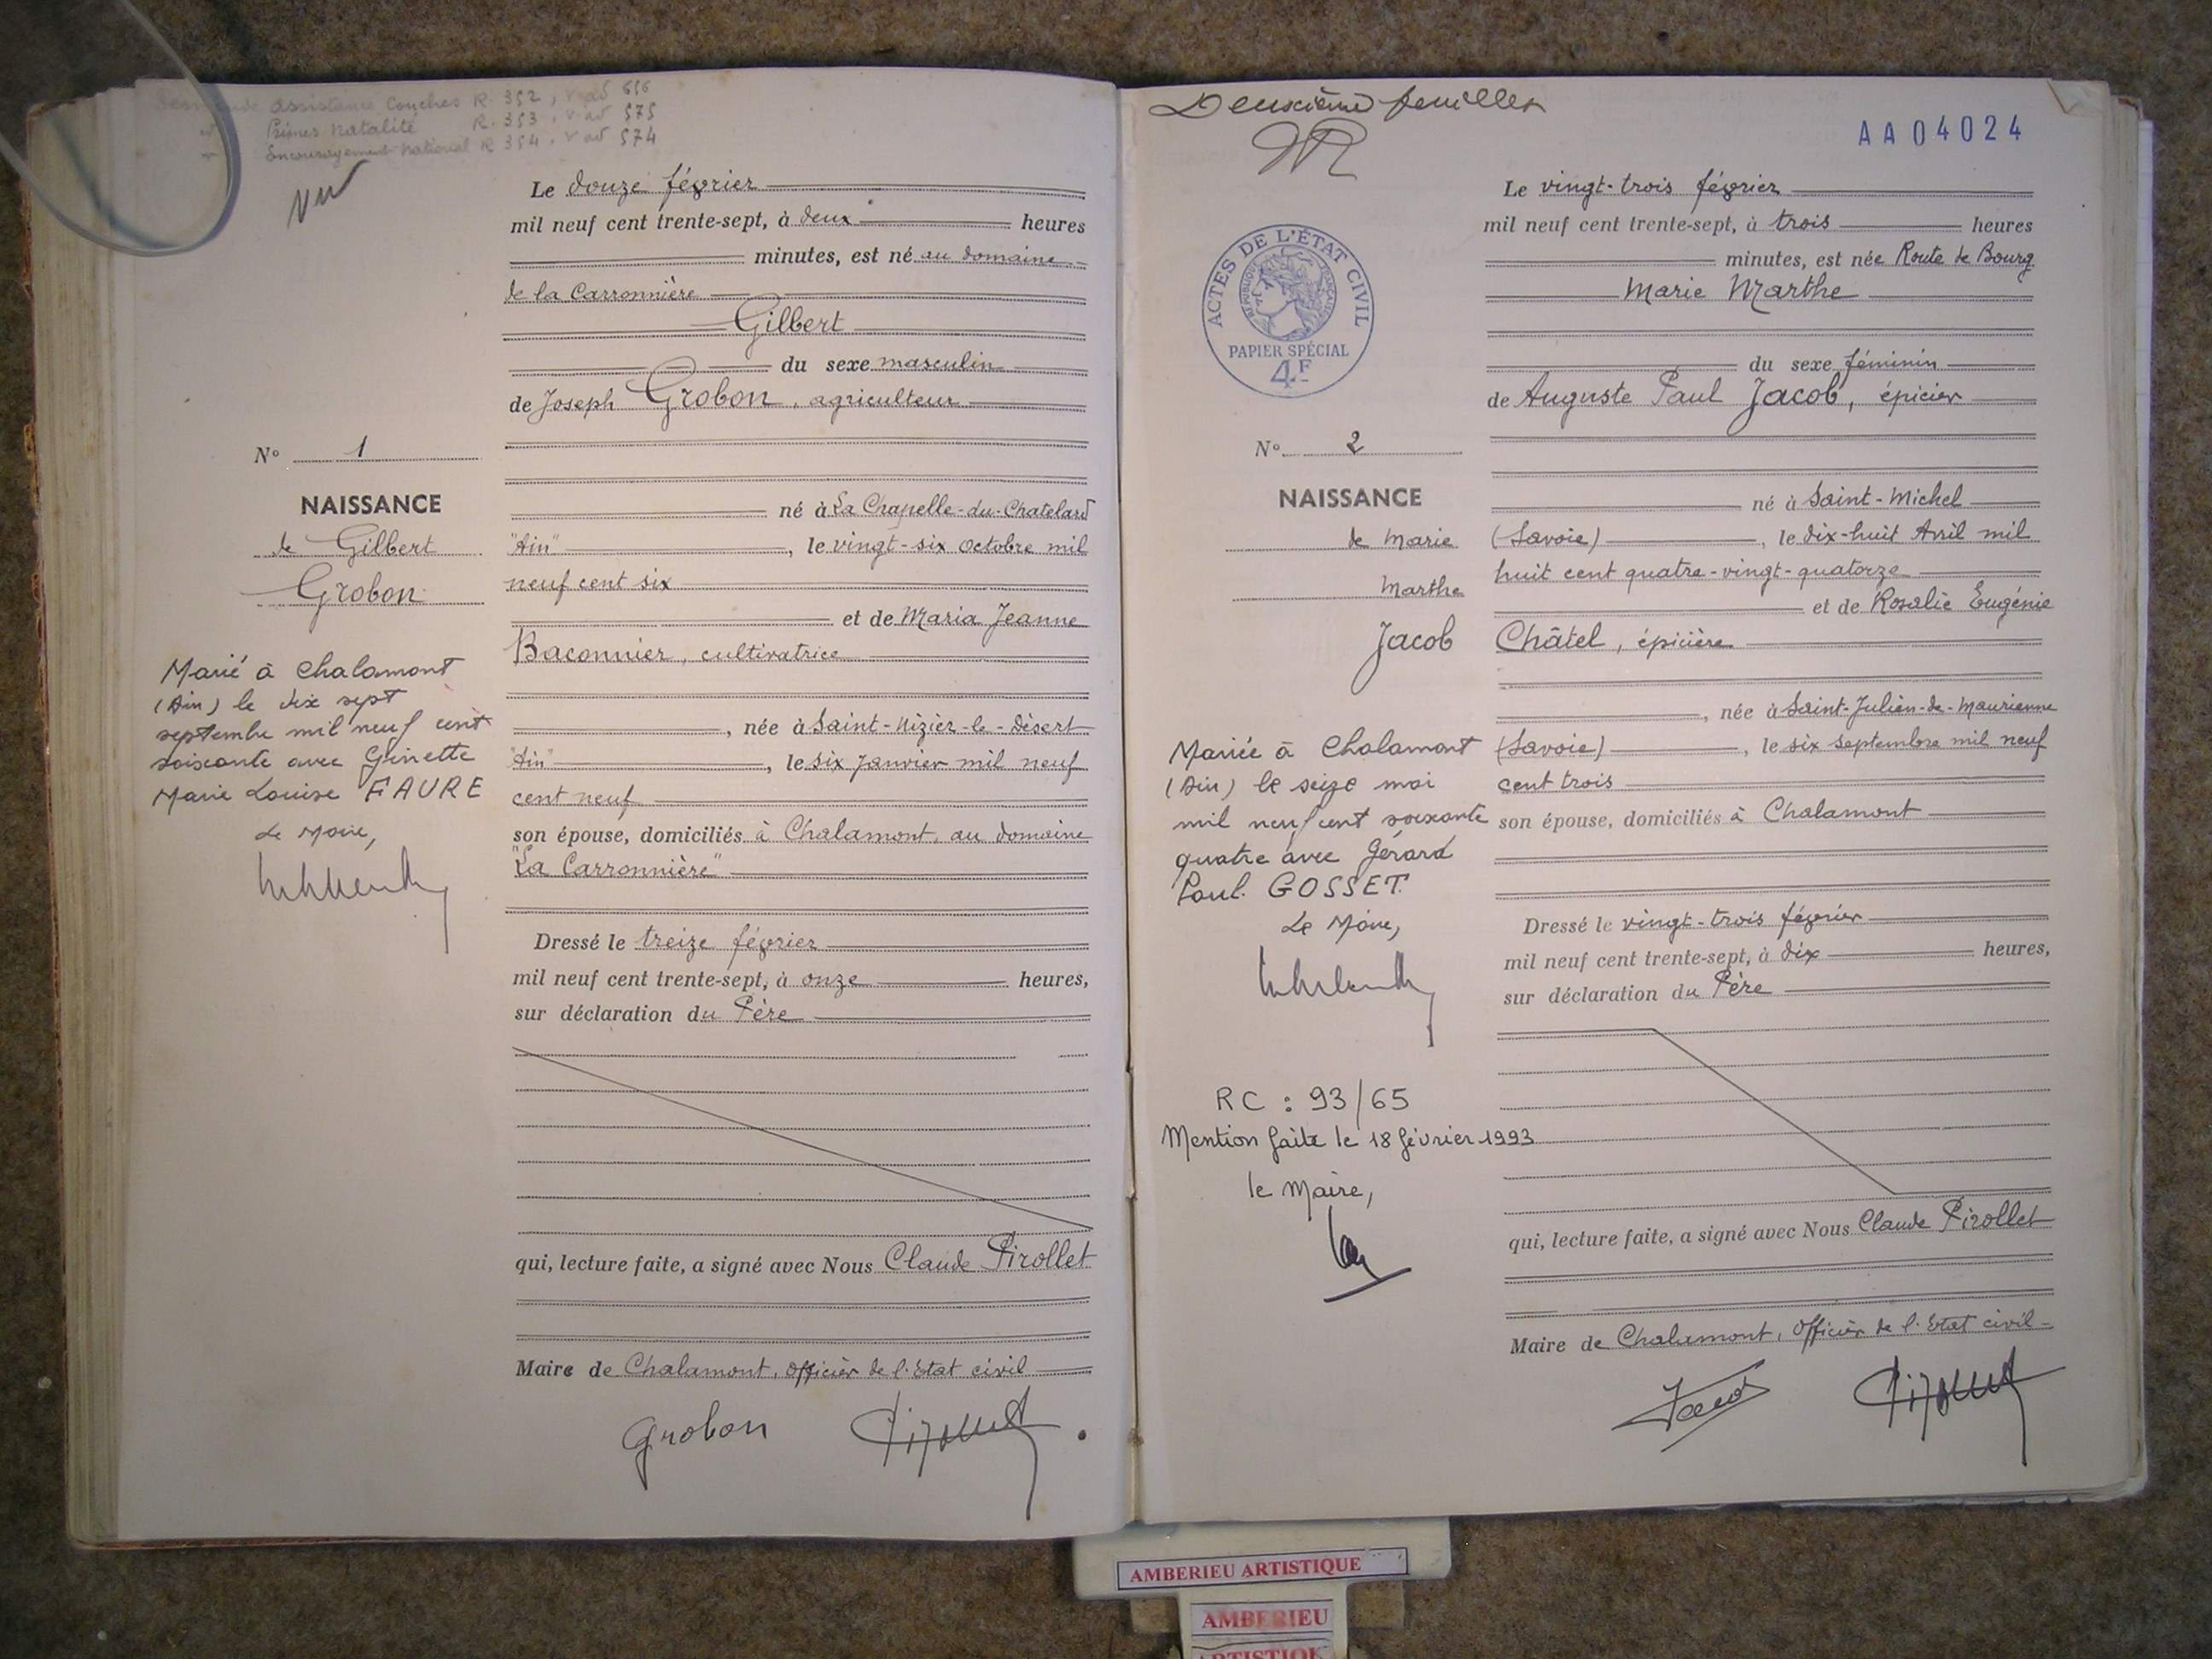 assistance Couches R. 352, v. ad 656
Primes Natalité R. 353, v. ad 575
Encouragement National R. 354, v. ad 574
Vu
Le douze février
mil neuf cent trente-sept, à deux heures
minutes, est né au domaine
de la Carronnière
Gilbert
du sexe masculin
de Joseph Grobon, agriculteur
N° 1
NAISSANCE
de Gilbert
Grobon
né à La Chapelle-du-Chatelard
"Ain", le vingt-six Octobre mil
neuf cent six
et de Maria Jeanne
Baconnier, cultivatrice
, née à Saint-Nizier-le-Désert
"Ain", le six Janvier mil neuf
cent neuf
son épouse, domiciliés à Chalamont, au domaine
"La Carronnière"
Marié à Chalamont
(Ain) le dix sept
septembre mil neuf cent
soixante avec Ginette
Marie Louise FAURE
Le Maire,
Dressé le treize février
mil neuf cent trente-sept, à onze heures,
sur déclaration du Père
qui, lecture faite, a signé avec Nous Claude Pirollet
Maire de Chalamont, Officier de l'Etat civil
Grobon Pirollet
Deuxième feuillet
AA04024
ACTES DE L'ÉTAT CIVIL
RÉPUBLIQUE FRANÇAISE
PAPIER SPÉCIAL
4F
Le vingt-trois février
mil neuf cent trente-sept, à trois heures
minutes, est née Route de Bourg
Marie Marthe
du sexe féminin
de Auguste Paul Jacob, épicier
N° 2
NAISSANCE
de Marie
Marthe
Jacob
né à Saint-Michel
(Savoie), le dix-huit Avril mil
huit cent quatre-vingt-quatorze
et de Rosalie Eugénie
Châtel, épicière
, née à Saint-Julien-de-Maurienne
(Savoie), le six septembre mil neuf
cent trois
son épouse, domiciliés à Chalamont
Mariée à Chalamont
(Ain) le seize mai
mil neuf cent soixante
quatre avec Gérard
Paul GOSSET.
Le Maire,
RC : 93/65
Mention faite le 18 février 1993
le Maire,
Dressé le vingt-trois février
mil neuf cent trente-sept, à dix heures,
sur déclaration du Père
qui, lecture faite, a signé avec Nous Claude Pirollet
Maire de Chalamont, Officier de l'Etat civil
Jacob Pirollet
AMBERIEU ARTISTIQUE
AMBERIEU
ARTISTIQUE